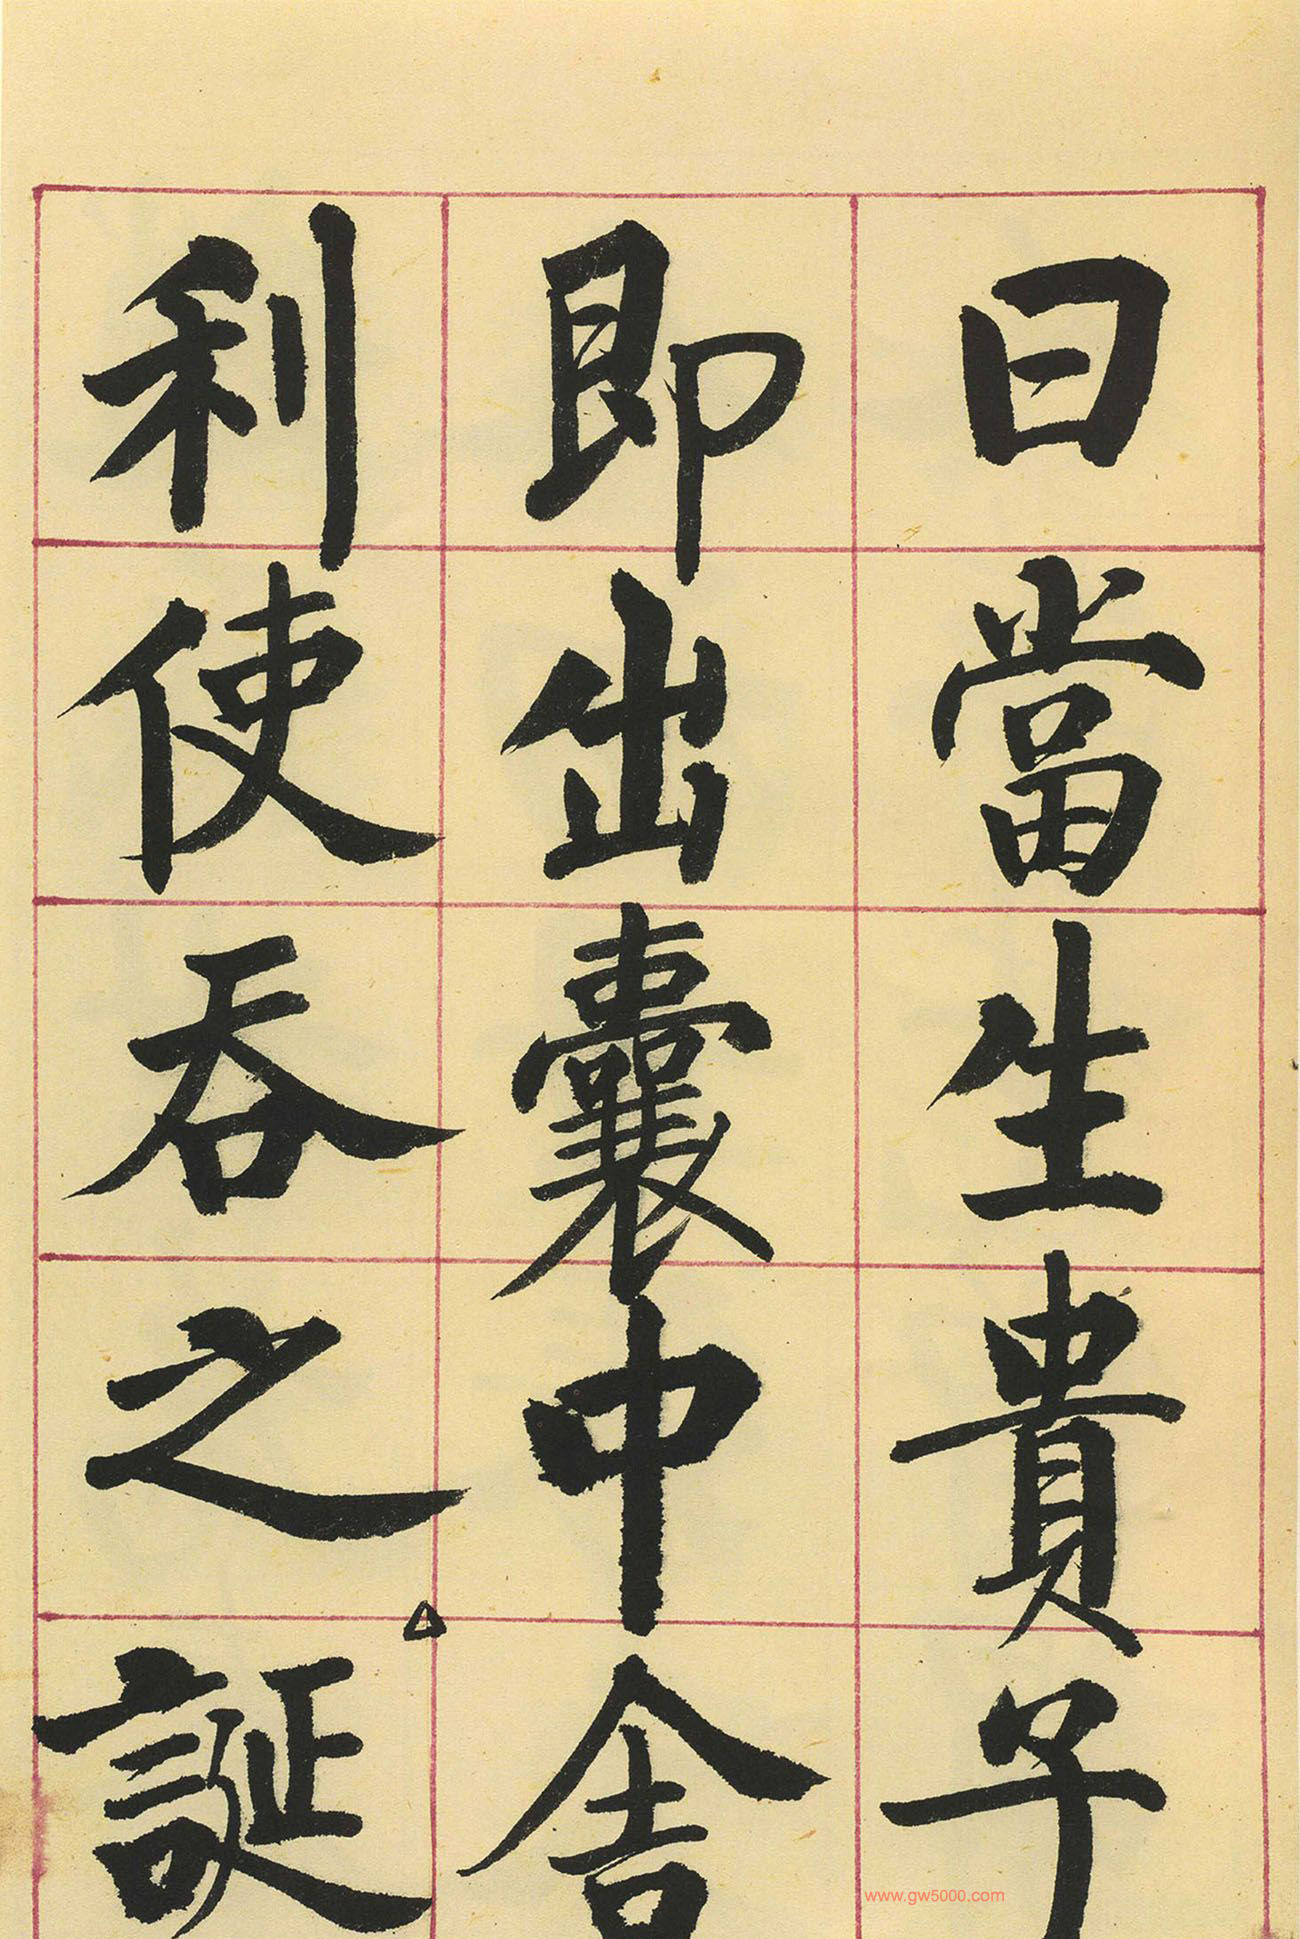 曰當生貴子
即出囊中舍
利使吞之誕
www.gw5000.com